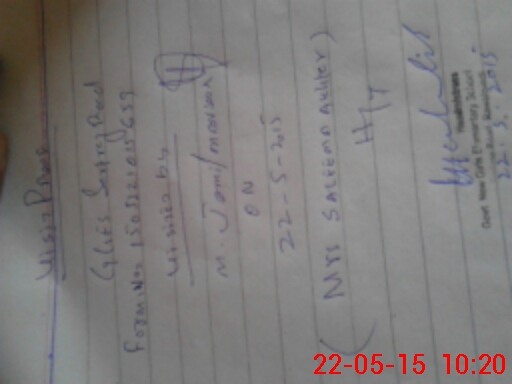 Visit Proof
GGES Sargroad
Form No. 150321015659
Visited by
M. Jamil
ON
22-5-2015
(Mrs SALEEMA Akhter)
H/T
Headmistress
Govt. New Girls Elementary School
22.5.2015
22-05-15 10:20